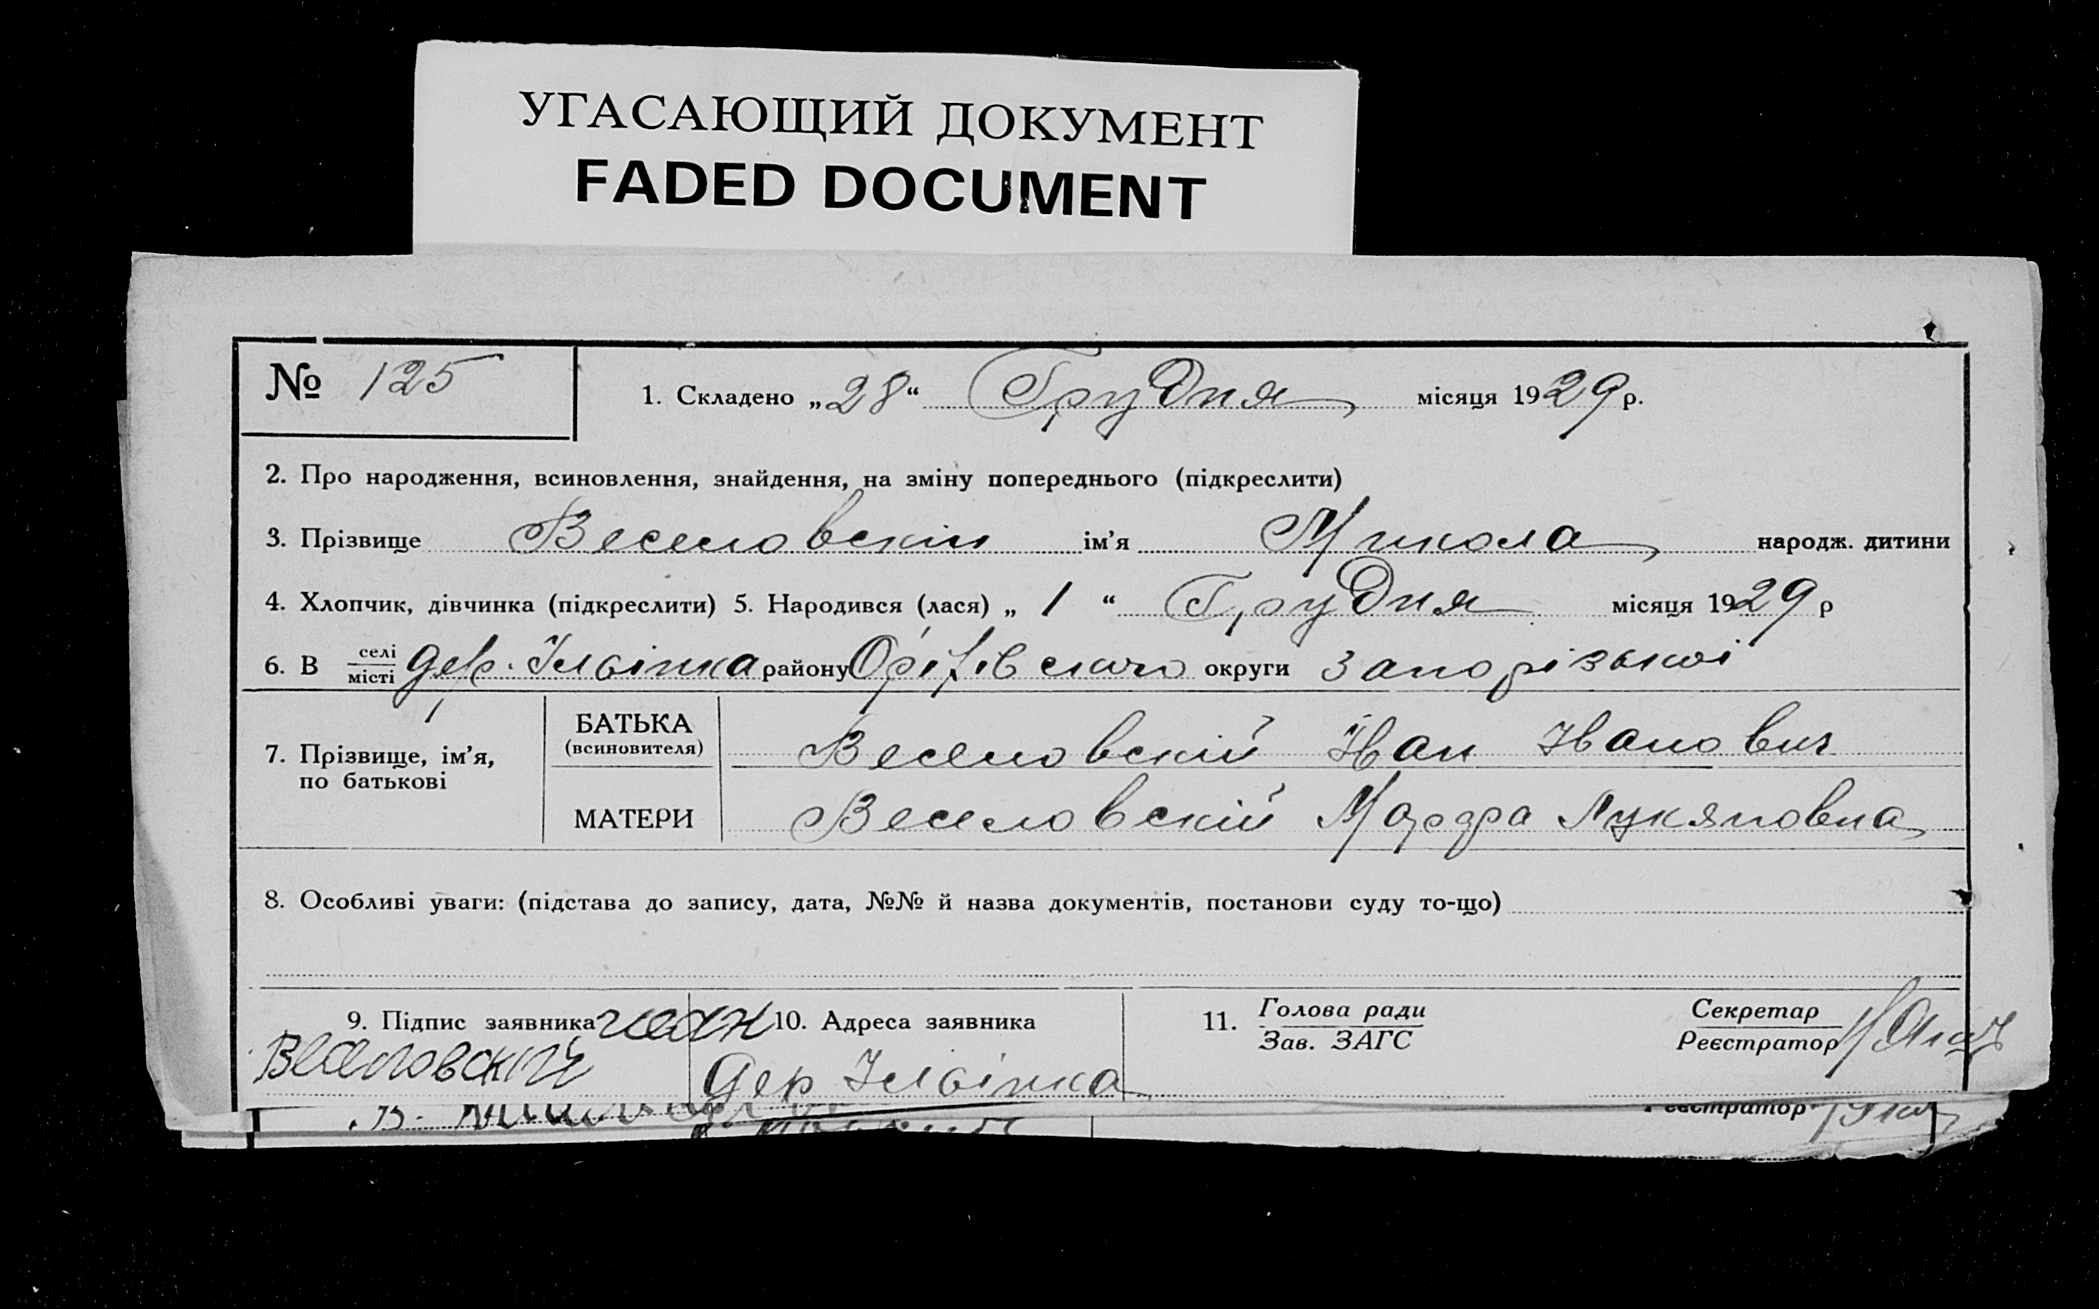 УГАСАЮЩИЙ ДОКУМЕНТ
FADED DOCUMENT
№ 125
1. Складено „28“ Грудня місяця 1929 р.
2. Про народження, всиновлення, знайдення, на зміну попереднього (підкреслити)
3. Прізвище Веселовскій ім’я Микола народж. дитини
4. Хлопчик, дівчинка (підкреслити) 5. Народився (лася) „ 1 “ Грудня місяця 1929 р
6. В селі/місті дер. Ільінка району Оріхівского округи Запорізької
7. Прізвище, ім’я, по батькові
БАТЬКА (всиновителя) Веселовскій Іван Іванович
МАТЕРИ Веселовскій Марфа Лукяновна
8. Особливі уваги: (підстава до запису, дата, №№ й назва документів, постанови суду то-що)
9. Підпис заявника Иван
Веселовский
10. Адреса заявника
дер Ільінка
11. Голова ради
Зав. ЗАГС
Секретар
Реєстратор
Реєстратор